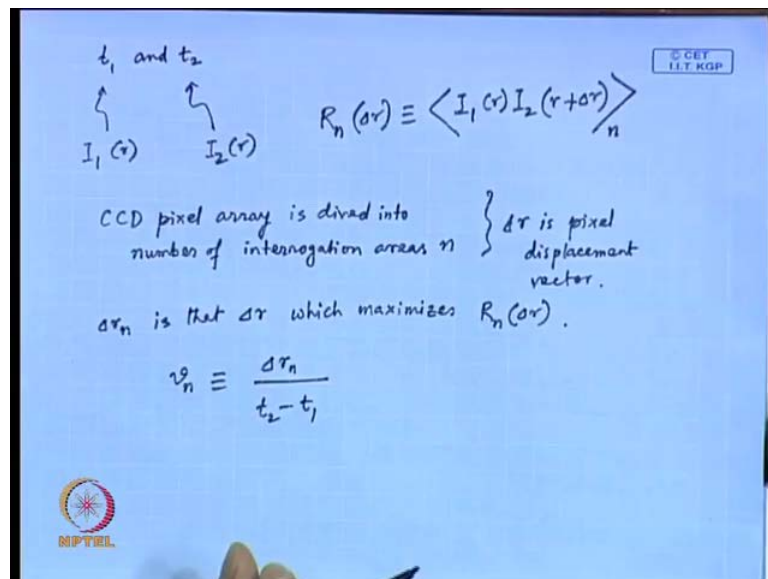 t₁ and t₂
© CET
I.I.T. KGP
I₁(r) I₂(r) Rₙ(Δr) ≡ ⟨I₁(r) I₂(r+Δr)⟩ₙ
CCD pixel array is divided into
number of interrogation areas n } Δr is pixel
displacement
vector.
Δrₙ is that Δr which maximizes Rₙ(Δr).
vₙ ≡ Δrₙ / (t₂ - t₁)
NPTEL